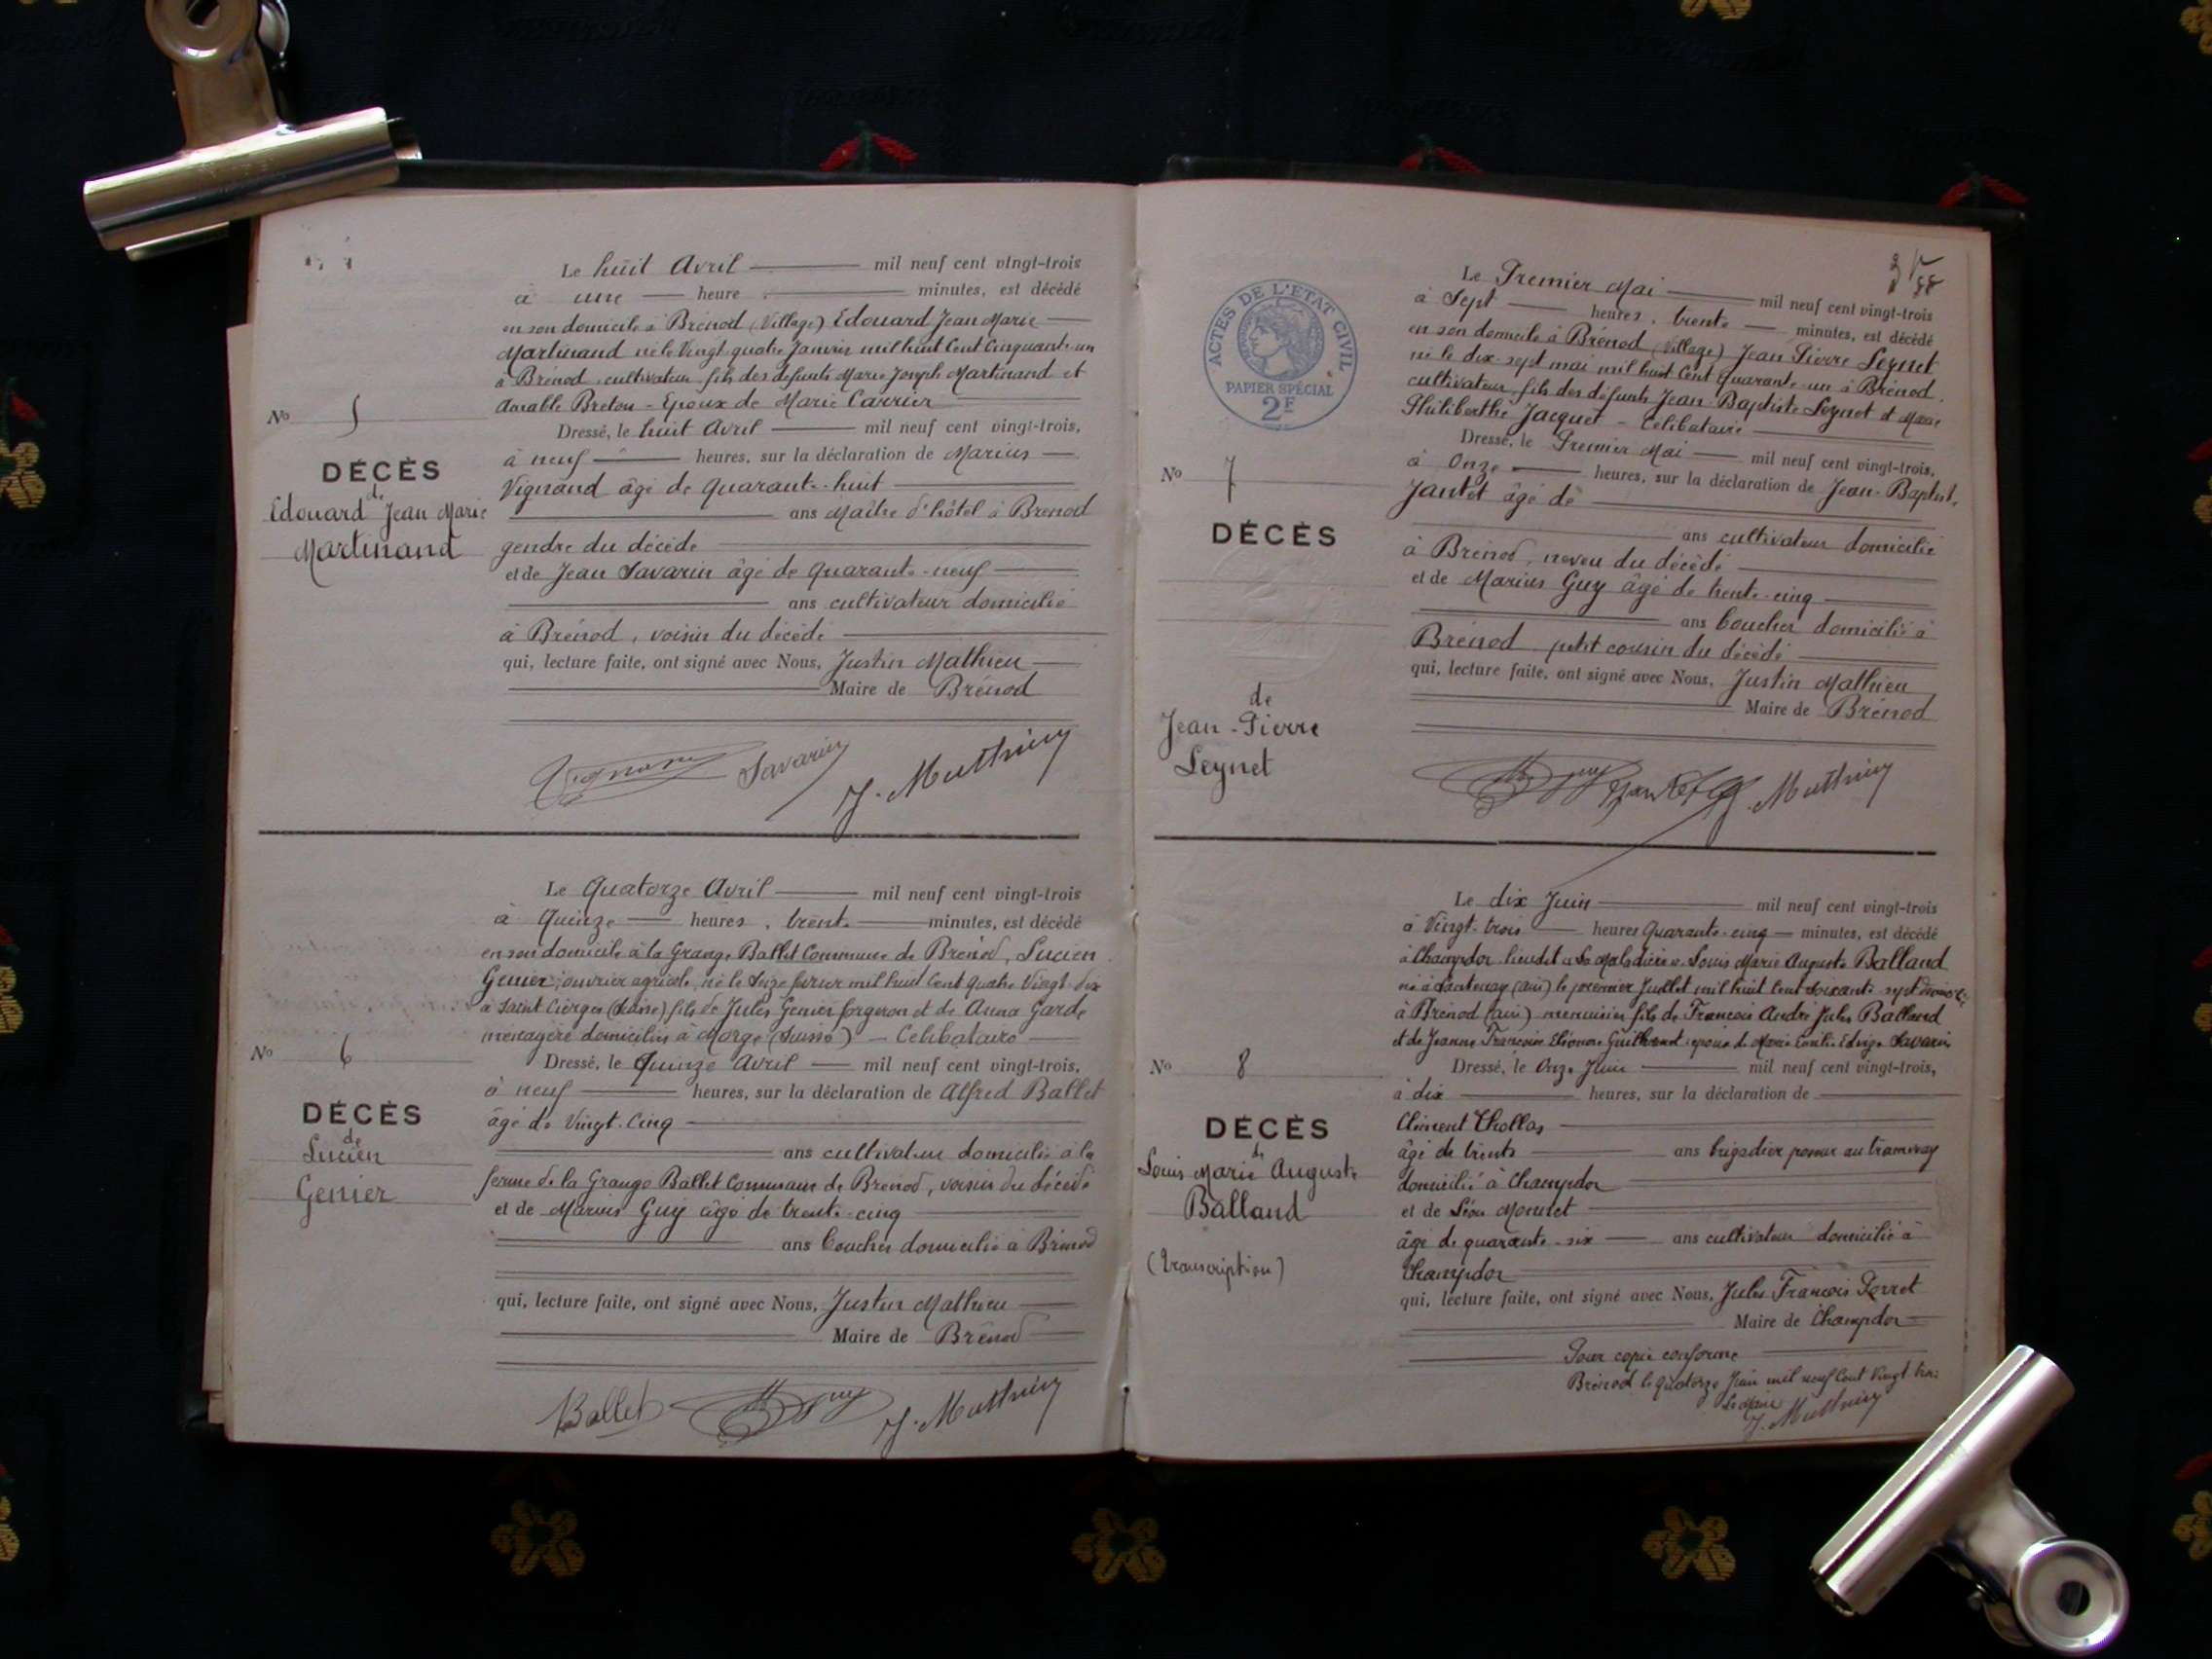 Le huit Avril mil neuf cent vingt-trois
à une heure minutes, est décédé
en son domicile à Brénod (Village) Edouard Jean Marie
Martinand né le Vingt quatre Janvier mil huit Cent Cinquante un
à Brénod cultivateur fils des défunts Marie Joseph Martinand et
Aimable Breton - Epoux de Marie Carrier
No 5
Dressé, le huit Avril mil neuf cent vingt-trois,
à neuf heures, sur la déclaration de Marius
DÉCÈS
de
Edouard Jean Marie
Martinand
Vignand âgé de quarante-huit
ans Maître d'hôtel à Brenod
gendre du décédé
et de Jean Savarin âgé de quarante-neuf
ans cultivateur domicilié
à Brénod, voisin du décédé
qui, lecture faite, ont signé avec Nous, Justin Mathieu
Maire de Brénod
Vignand Savarin J. Mathieu
Le Quatorze Avril mil neuf cent vingt-trois
à Quinze heures, trente minutes, est décédé
en son domicile à la Grange Ballet Commune de Brénod, Lucien
Genier, ouvrier agricole, né le Seize février mil huit Cent Quatre Vingt dix
à Saint Cierges (Suisse) fils de Jules Genier forgeron et de Anna Garde
ménagère domiciliés à Morge (Suisse) - Celibataire
No 6
Dressé, le Quinze Avril mil neuf cent vingt-trois,
à neuf heures, sur la déclaration de Alfred Ballet
DÉCÈS
de
Lucien
Genier
âgé de Vingt-Cinq
ans cultivateur domicilié à la
ferme de la Grange Ballet Commune de Brenod, voisin du décédé
et de Marius Guy âgé de trente-cinq
ans boucher domicilié à Brénod
qui, lecture faite, ont signé avec Nous, Justin Mathieu
Maire de Brénod
Ballet Guy J. Mathieu
35
ACTES DE L'ETAT CIVIL
PAPIER SPÉCIAL
2F
Le Premier Mai mil neuf cent vingt-trois
à Sept heures, trente minutes, est décédé
en son domicile à Brénod (Village) Jean Pierre Seynet
né le dix-sept mai mil huit Cent Quarante-un à Brénod
cultivateur fils des défunts Jean-Baptiste Seynet et Marie
Philiberthe Jacquet - Célibataire
No 7
Dressé, le Premier Mai mil neuf cent vingt-trois,
à Onze heures, sur la déclaration de Jean-Baptiste
DÉCÈS
de
Jean-Pierre
Seynet
Jantet âgé de
ans cultivateur domicilié
à Brénod, neveu du décédé
et de Marius Guy âgé de trente-cinq
ans boucher domicilié à
Brénod petit cousin du décédé
qui, lecture faite, ont signé avec Nous, Justin Mathieu
Maire de Brénod
Guy Jantet J. Mathieu
Le dix Juin mil neuf cent vingt-trois
à Vingt-trois heures Quarante-cinq minutes, est décédé
à Champdor lieudit "La Maladière" Louis Marie Auguste Balland
né à (ain) le premier Juillet mil huit Cent soixante sept domicilié
à Brénod (ain) menuisier fils de François André Jules Balland
et de Jeanne Françoise Eléonore époux de Marie Emilie Edwige Savarin
No 8
Dressé, le Onze Juin mil neuf cent vingt-trois,
à dix heures, sur la déclaration de
DÉCÈS
de
Louis Marie Auguste
Balland
(transcription)
Clément Chollas
âgé de trente ans brigadier poseur au tramway
domicilié à Champdor
et de Léon Monnet
âgé de quarante-six ans cultivateur domicilié à
Champdor
qui, lecture faite, ont signé avec Nous, Jules François Perret
Maire de Champdor
Pour copie conforme
Brénod le quatorze Juin mil neuf Cent Vingt trois
Le Maire
J. Mathieu